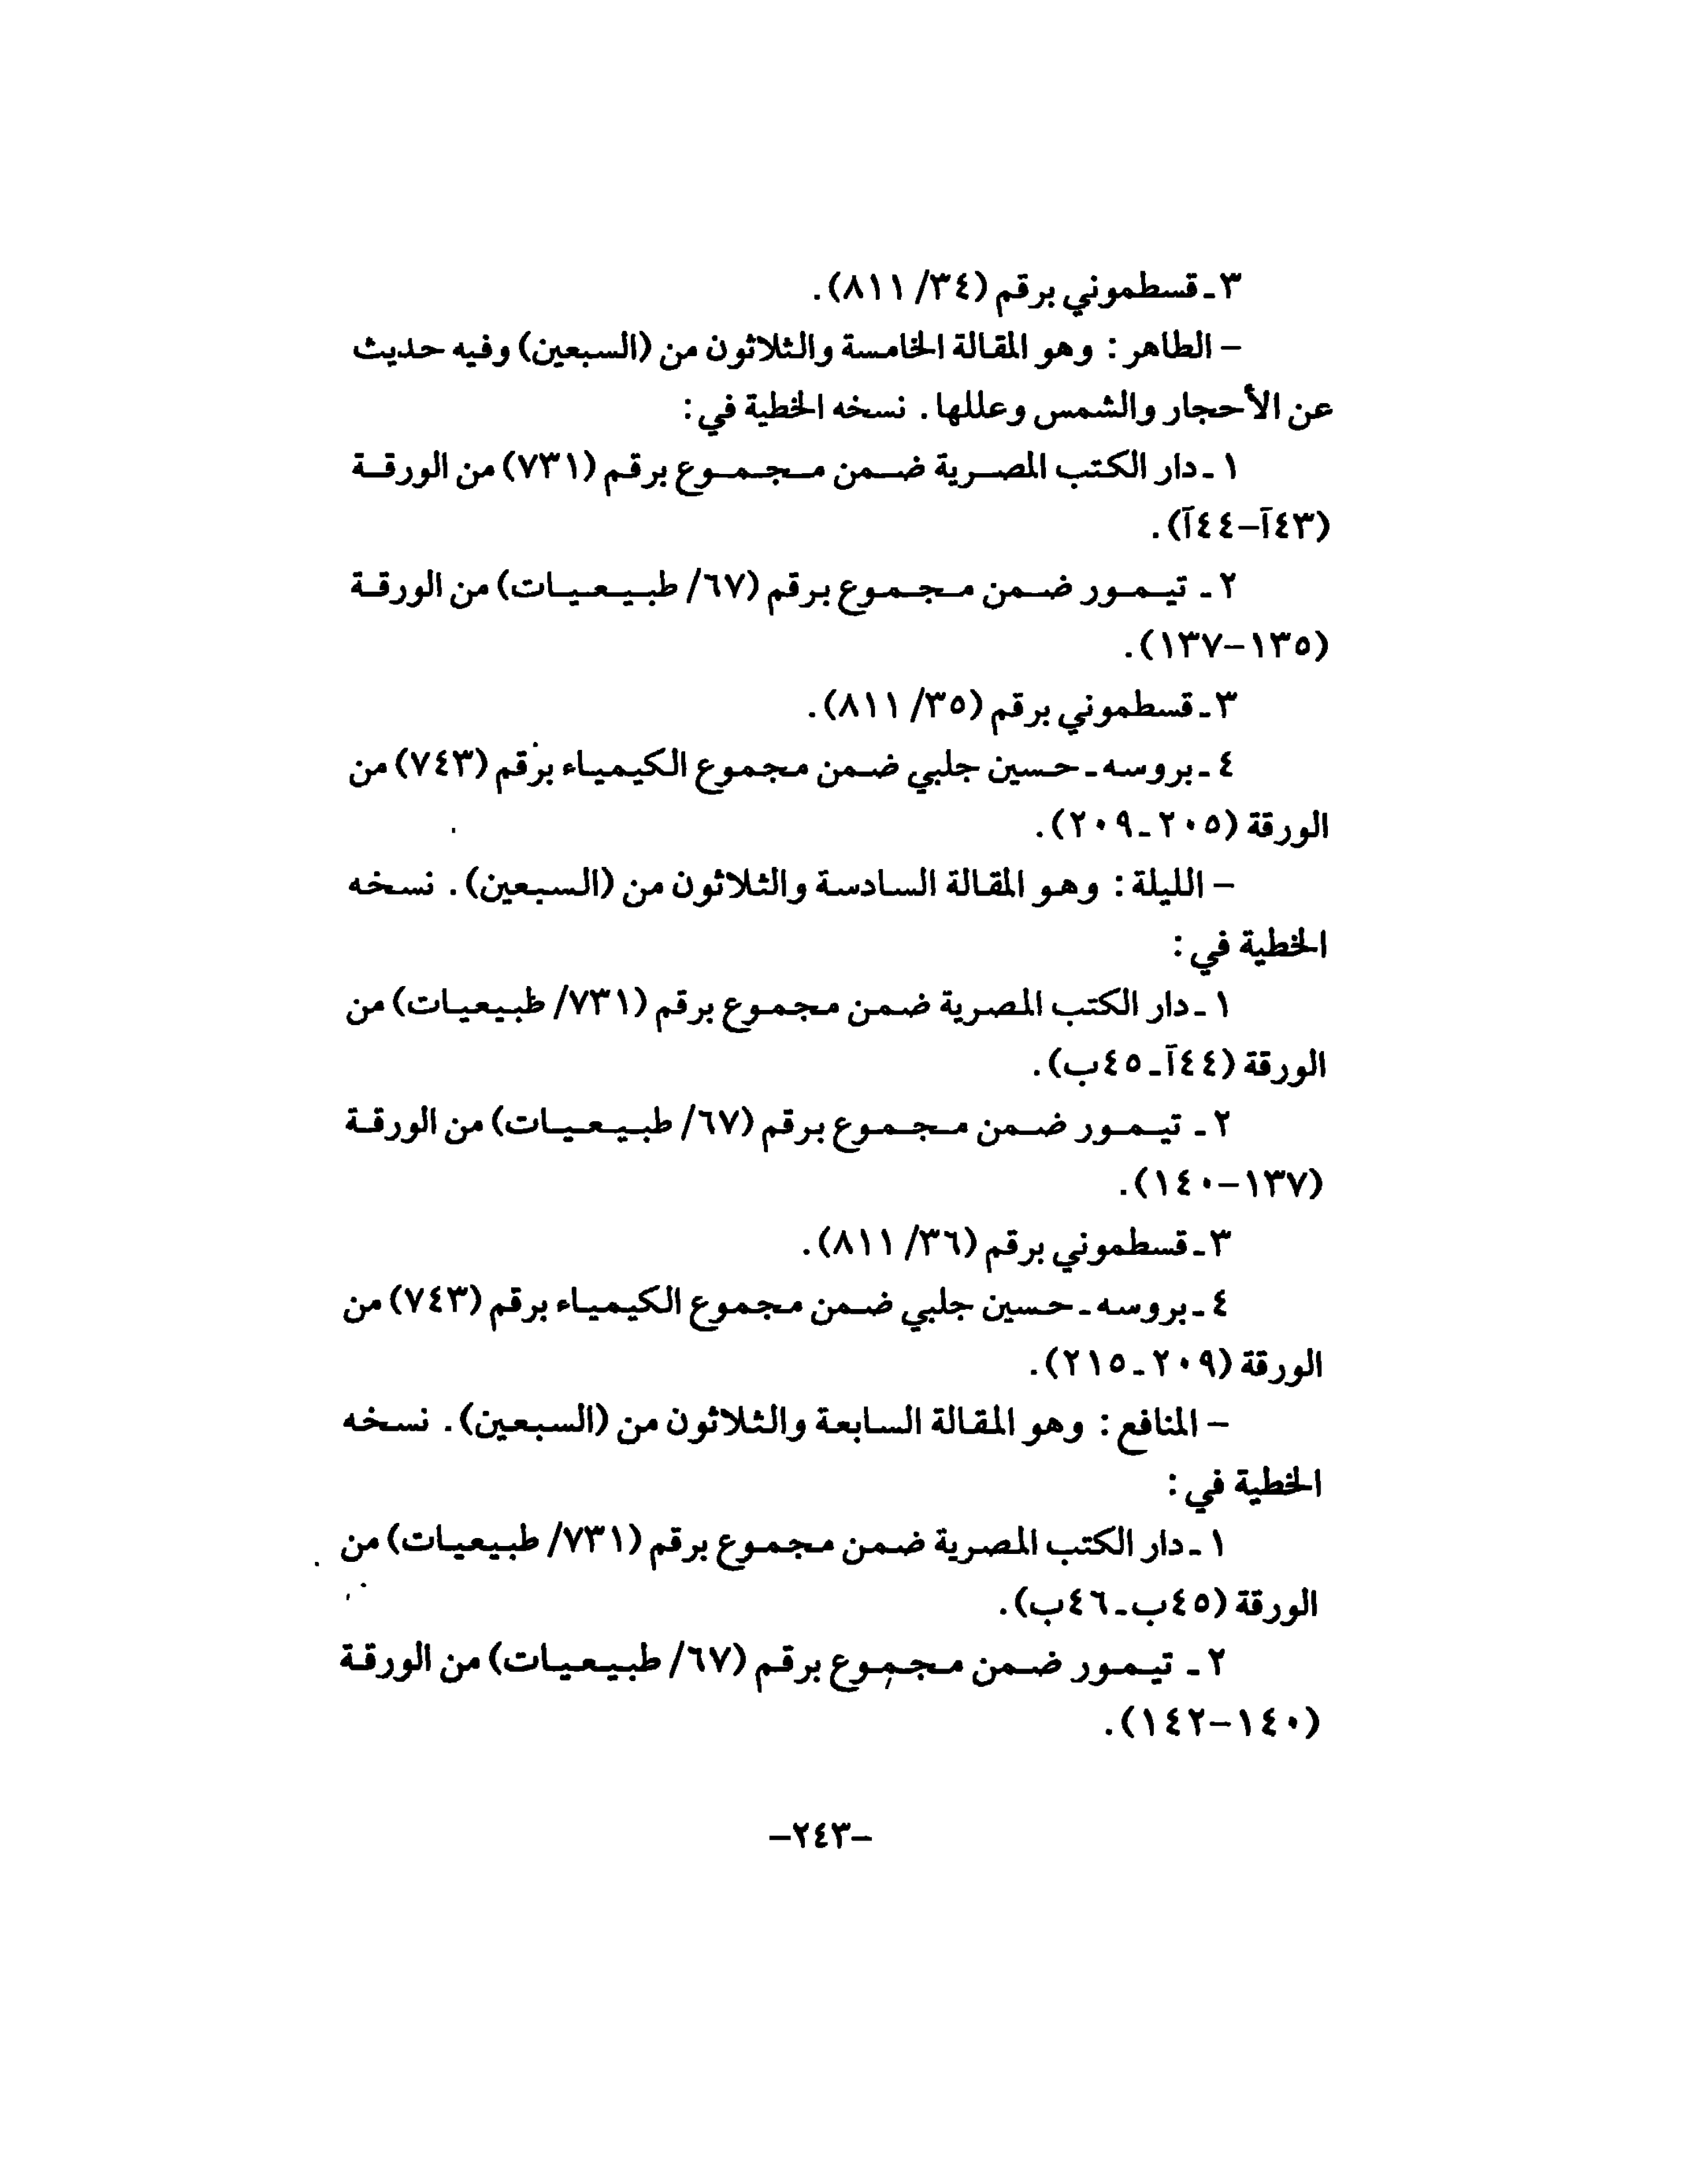 ٣ ـ قسطموني برقم (٣٤/ ٨١١).
– الطاهر : وهو المقالة الخامسة والثلاثون من (السبعين) وفيه حديث
عن الأحجار والشمس وعللها . نسخه الخطية في :
١ ـ دار الكتب المصرية ضمن مجموع برقم (٧٣١) من الورقة
(٤٣آ–٤٤آ).
٢ ـ تيمور ضمن مجموع برقم (٦٧/ طبيعيات) من الورقة
(١٣٥–١٣٧).
٣ ـ قسطموني برقم (٣٥/ ٨١١).
٤ ـ بروسه ـ حسين جلبي ضمن مجموع الكيمياء برقم (٧٤٣) من
الورقة (٢٠٥ـ٢٠٩).
– الليلة : وهو المقالة السادسة والثلاثون من (السبعين) . نسخه
الخطية في :
١ ـ دار الكتب المصرية ضمن مجموع برقم (٧٣١/ طبيعيات) من
الورقة (٤٤آـ٤٥ب).
٢ ـ تيمور ضمن مجموع برقم (٦٧/ طبيعيات) من الورقة
(١٣٧–١٤٠).
٣ ـ قسطموني برقم (٣٦/ ٨١١).
٤ ـ بروسه ـ حسين جلبي ضمن مجموع الكيمياء برقم (٧٤٣) من
الورقة (٢٠٩ـ٢١٥).
– المنافع : وهو المقالة السابعة والثلاثون من (السبعين) . نسخه
الخطية في :
١ ـ دار الكتب المصرية ضمن مجموع برقم (٧٣١/ طبيعيات) من
الورقة (٤٥ب ـ ٤٦ب).
٢ ـ تيمور ضمن مجموع برقم (٦٧/ طبيعيات) من الورقة
(١٤٠–١٤٢).
–٢٤٣–